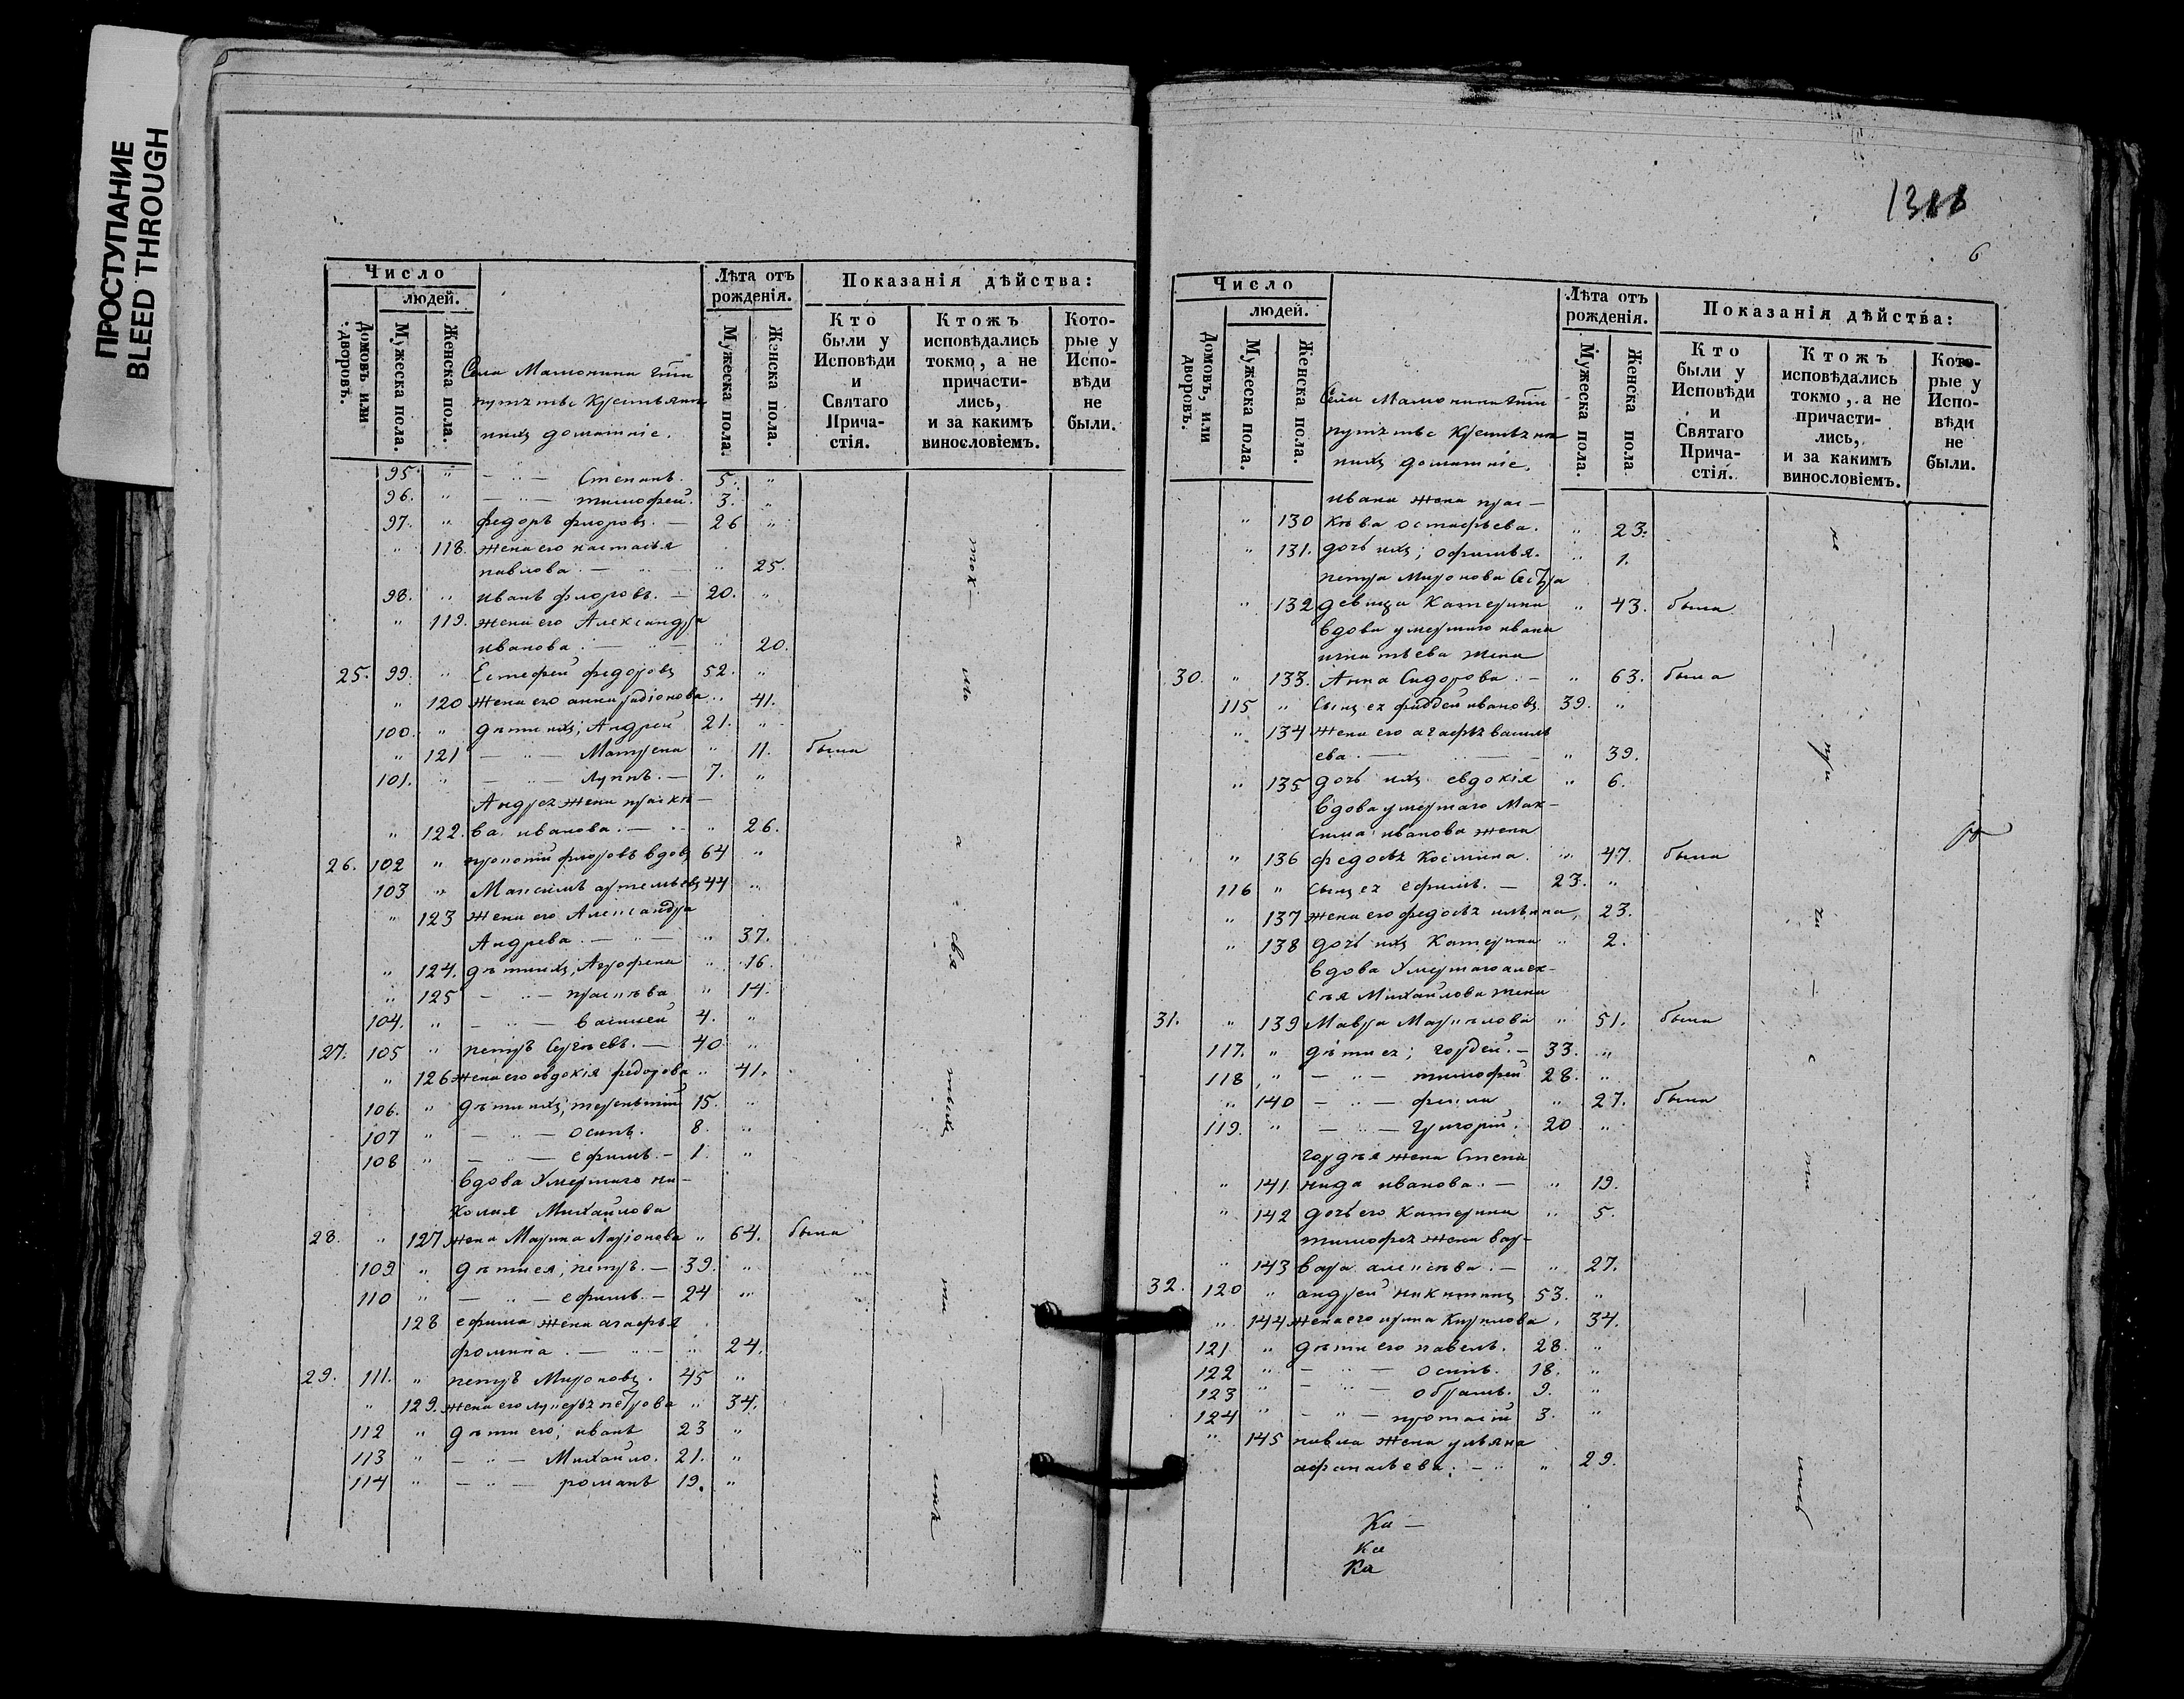 ПРОСТУПАНИЕ
BLEED THROUGH
Число
людей.
Домовъ или дворовъ.
Мужеска пола.
Женска пола.
Лѣта отъ рожденія.
Мужеска пола.
Женска пола.
Показанія дѣйства:
Кто были у Исповѣди и Святаго Прича-стія.
Ктожъ исповѣдались токмо, а не причасти-лись, и за какимъ винословіемъ.
Кото-рые у Испо-вѣди не были.
Села Мамонина
домашніе.
95. " — " — Степанъ. 5. "
96. " — " — тимофей. 3. "
97. " федоръ флоровъ. — 26 "
" 118. жена его настасья
павлова. — " — " 25.
98. " иванъ флоровъ. — 20. "
" 119. жена его Александра
иванова. — " — " 20.
25. 99. " Естефей федоровъ 52. "
" 120 жена его анна радіонова " 41.
100. " дѣти ихъ; Андрей 21. "
" 121 — " — Матрена " 11. была
101. " — " — луппъ. — 7. "
Андрея жена праскѣ—
" 122. ва иванова. — " " 26.
26. 102 " флоровъ вдовъ 64 "
103 " Максимъ артемьевъ 44 "
" 123 жена его Александра
Андрева. — " — " 37.
" 124. дѣти ихъ; Агрофена " 16.
" 125 — " — прасковѣва " 14.
104. " — " — василей 4. "
27. 105 " петръ Сергѣевъ. — 40. "
" 126 жена его евдокія федорова " 41.
106. " дѣти ихъ; терентій 15. "
107 " — " — осипъ. 8. "
108 " — " — ефимъ. — 1. "
вдова Умершаго ни—
колая Михайлова
28. " 127 жена Марина Ларіонова " 64. была
109 " дѣти ея; петръ. — 39. "
110 " — " — ефимъ. — 24 "
128 ефима жена агафья
фомина. — " — " 24.
29. 111. " петръ Мироновъ. 45 "
" 129. жена его лукерья петрова " 34.
112 " дѣти его; иванъ 23 "
113 " — " — Михайло. 21. "
114 " — " — романъ 19. "
1311
6
Число
людей.
Домовъ, или дворовъ.
Мужеска пола.
Женска пола.
Лѣта отъ рожденія.
Мужеска пола.
Женска пола.
Показанія дѣйства:
Кто были у Исповѣди и Святаго Прича-стія.
Ктожъ исповѣдались токмо, а не причасти-лись, и за какимъ винословіемъ.
Кото-рые у Испо-вѣди не были.
Села Мамонина
домашніе.
ивана жена прас—
" 130 кѣва остафьева. " 23.
" 131. дочь ихъ; офимья. " 1.
петра Миронова Сестра
" 132 девица Катерина " 43. была
вдова умершаго ивана
игнатьева жена
30. " 133. Анна Сидорова. — " 63. была
115 " Сынъ ея фаддей ивановъ. 39. "
" 134 жена его агафья василь
ева. — " — " 39.
" 135 дочь ихъ евдокія " 6.
вдова умершаго Мак—
сима иванова жена
" 136 федосья Космина. " 47. была
116 " сынъ ея ефимъ. — 23. "
" 137 жена его федосья ильина, 23.
" 138 дочь ихъ Катерина " 2.
вдова Умершаго алек—
сѣя Михайлова жена
31. " 139 Мавра " 51. была
117. " дѣти ея; гордей. — 33. "
118 " — " — тимофей 28. "
" 140 — " — фекла " 27. была
119. " — " — Григорій. 20 "
гордѣя жена Степа
" 141 нида иванова. — " 19.
" 142 дочь его Катерина " 5.
тимофея жена вар—
" 143 вара алексѣва. — " 27.
32. 120 " андрей никитинъ 53. "
" 144 жена его ирина Кирилова, 34.
121 " дѣти его павелъ. 28. "
122 " — " — осипъ. 18. "
123 " — " — обрамъ. 9. "
124 " — " — протасій 3. "
" 145 павла жена ульяна
афанасьева. — " " 29.
не — при — ча — с — ти — лись
Ка —
Ка
Ка